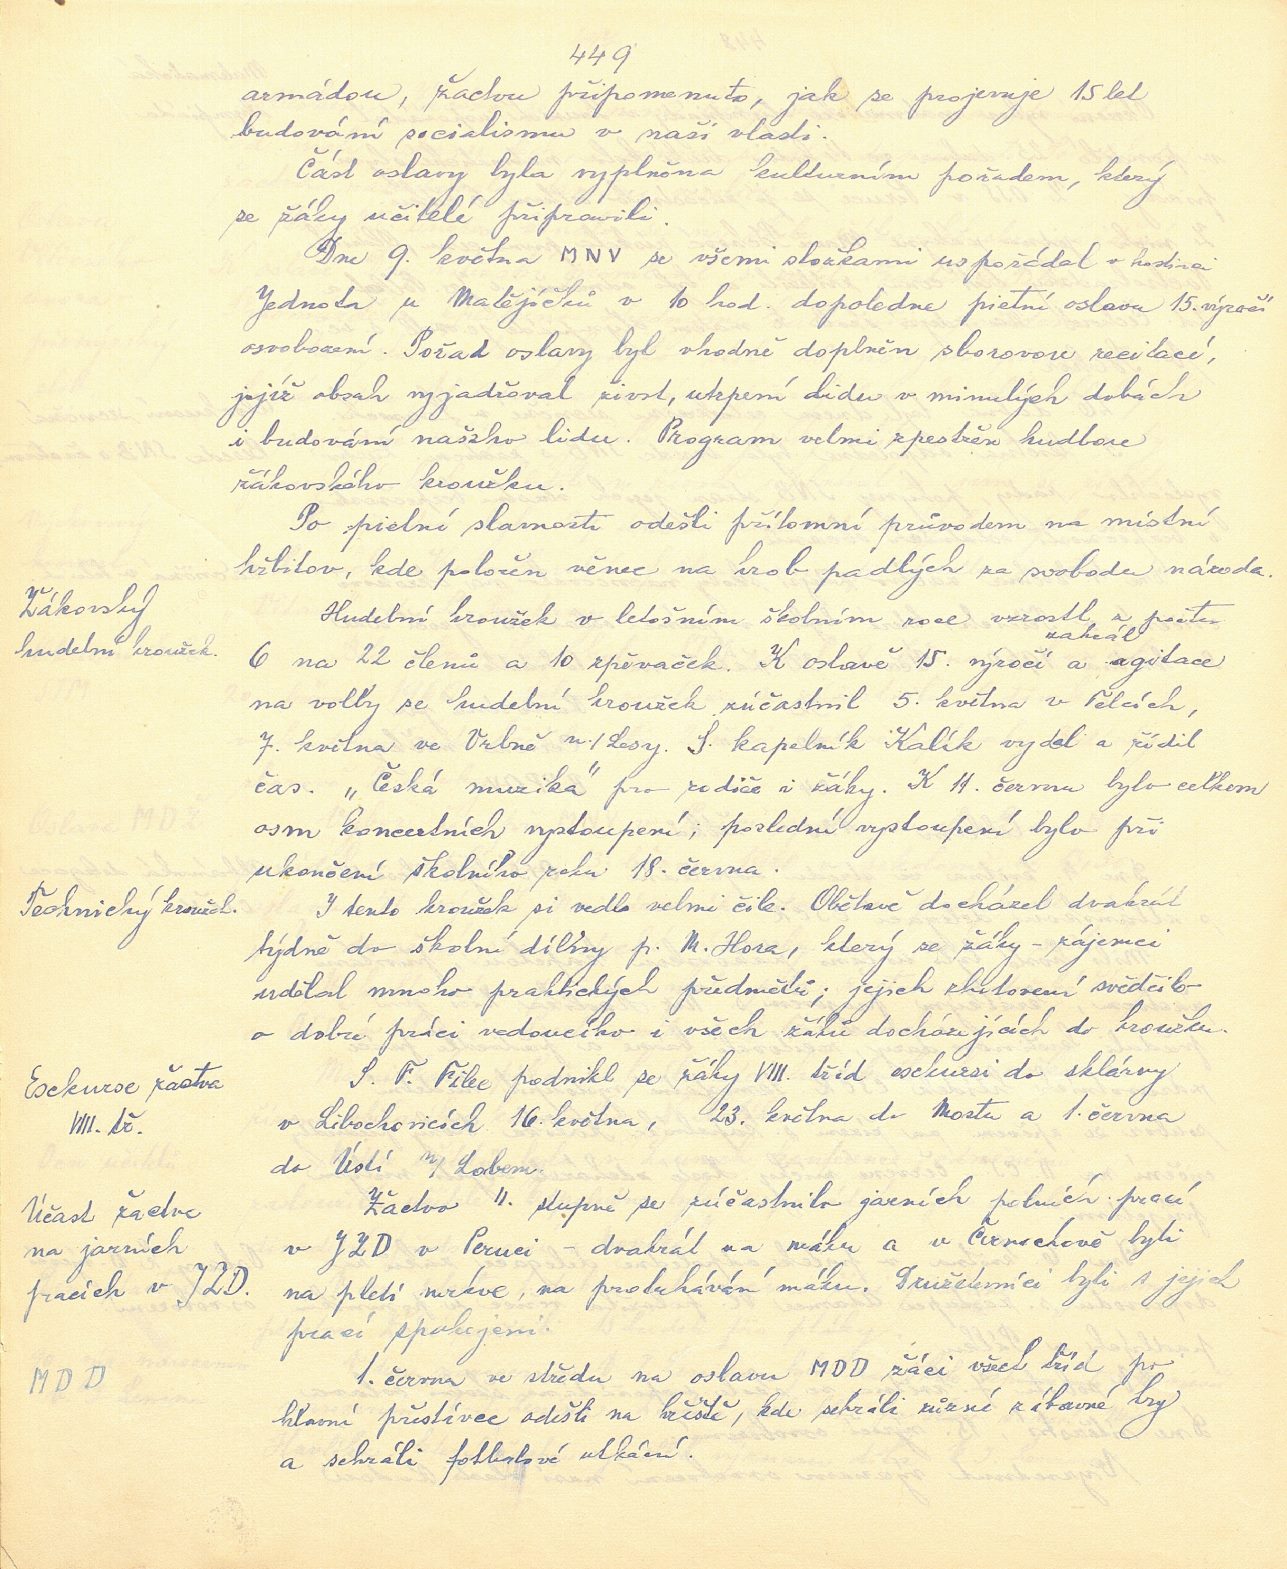 449
armádou, žactvu připomenuto, jak se projevuje 15 let
budování socialismu v naší vlasti.
Část oslavy byla vyplněna kulturním pořadem, který
se žáky učitelé připravili.
Dne 9. května MNV se všemi složkami uspořádal v hostinci
Jednota u Matějíčků v 10 hod. dopoledne pietní oslavu 15. výročí
osvobození. Pořad oslavy byl vhodně doplněn sborovou recitací,
jejíž obsah vyjadřoval život, utrpení lidu v minulých dobách
i budování našeho lidu. Program velmi zpestřen hudbou
žákovského kroužku.
Po pietní slavnosti odešli přítomní průvodem na místní
hřbitov, kde položen věnec na hrob padlých za svobodu národa.
Žákovský
hudební kroužek.
Hudební kroužek v letošním školním roce vzrostl z počtu
6 na 22 členů a 10 zpěvaček. K oslavě 15. výročí a agitace
zahrál
na volby se hudební kroužek zúčastnil 5. května v Telcích,
7. května ve Vrbně n./Lesy. S. kapelník Kalík vydal a řídil
čas. „Česká muzika" pro rodiče i žáky. K 11. červnu bylo celkem
osm koncertních vystoupení; poslední vystoupení bylo při
ukončení školního roku 18. června.
Technický kroužek.
I tento kroužek si vedl velmi čile. Obětavě docházel dvakrát
týdně do školní dílny p. M. Hora, který se žáky - zájemci
udělal mnoho praktických předmětů; jejich zhotovení svědčilo
o dobré práci vedoucího i všech žáků docházejících do kroužku.
Exkurse žactva
VIII. tř.
S. F. Filec podnikl se žáky VIII. tříd exkursi do sklárny
v Libochovicích 16. května, 23. května do Mostu a 1. června
do Ústí n/Labem.
Účast žactva
na jarních
pracích v JZD.
Žactvo II. stupně se zúčastnilo jarních polních prací
v JZD v Peruci - dvakrát na máku a v Černochově byli
na pletí mrkve, na protrhávání máku. Družstevníci byli s jejich
prací spokojeni.
MDD
1. června ve středu na oslavu MDD žáci všech tříd po
hlavní přestávce odešli na hřiště, kde sehráli různé zábavné hry
a sehráli fotbalové utkání.